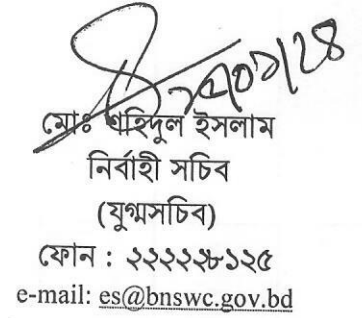 মোঃ শহিদুল ইসলাম
নির্বাহী সচিব
(যুগ্মসচিব)
ফোন : ২২২২২৮১২৫
e-mail: es@bnswc.gov.bd